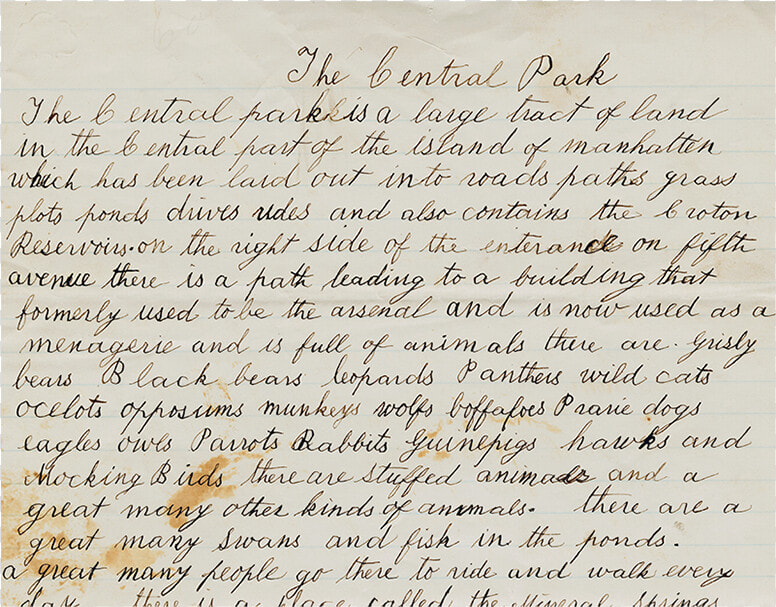 The Central Park
The Central park is a large tract of land
in the Central part of the island of manhatten
which has been laid out into roads paths grass
plots ponds drives rides and also contains the Croton
Reservoirs. on the right side of the enterance on fifth
avenue there is a path leading to a building that
formerly used to be the arsenal and is now used as a
menagerie and is full of animals there are. Grisly
bears Black bears leopards Panthers wild cats
ocelots opposums munkeys wolfs boffafoes Prarie dogs
eagles owls Parrots Rabbits Guinepigs hawks and
Mocking Birds there are stuffed animals and a
great many other kinds of animals. there are a
great many swans and fish in the ponds.
a great many people go there to ride and walk every
day there is a place called the Mineral Springs